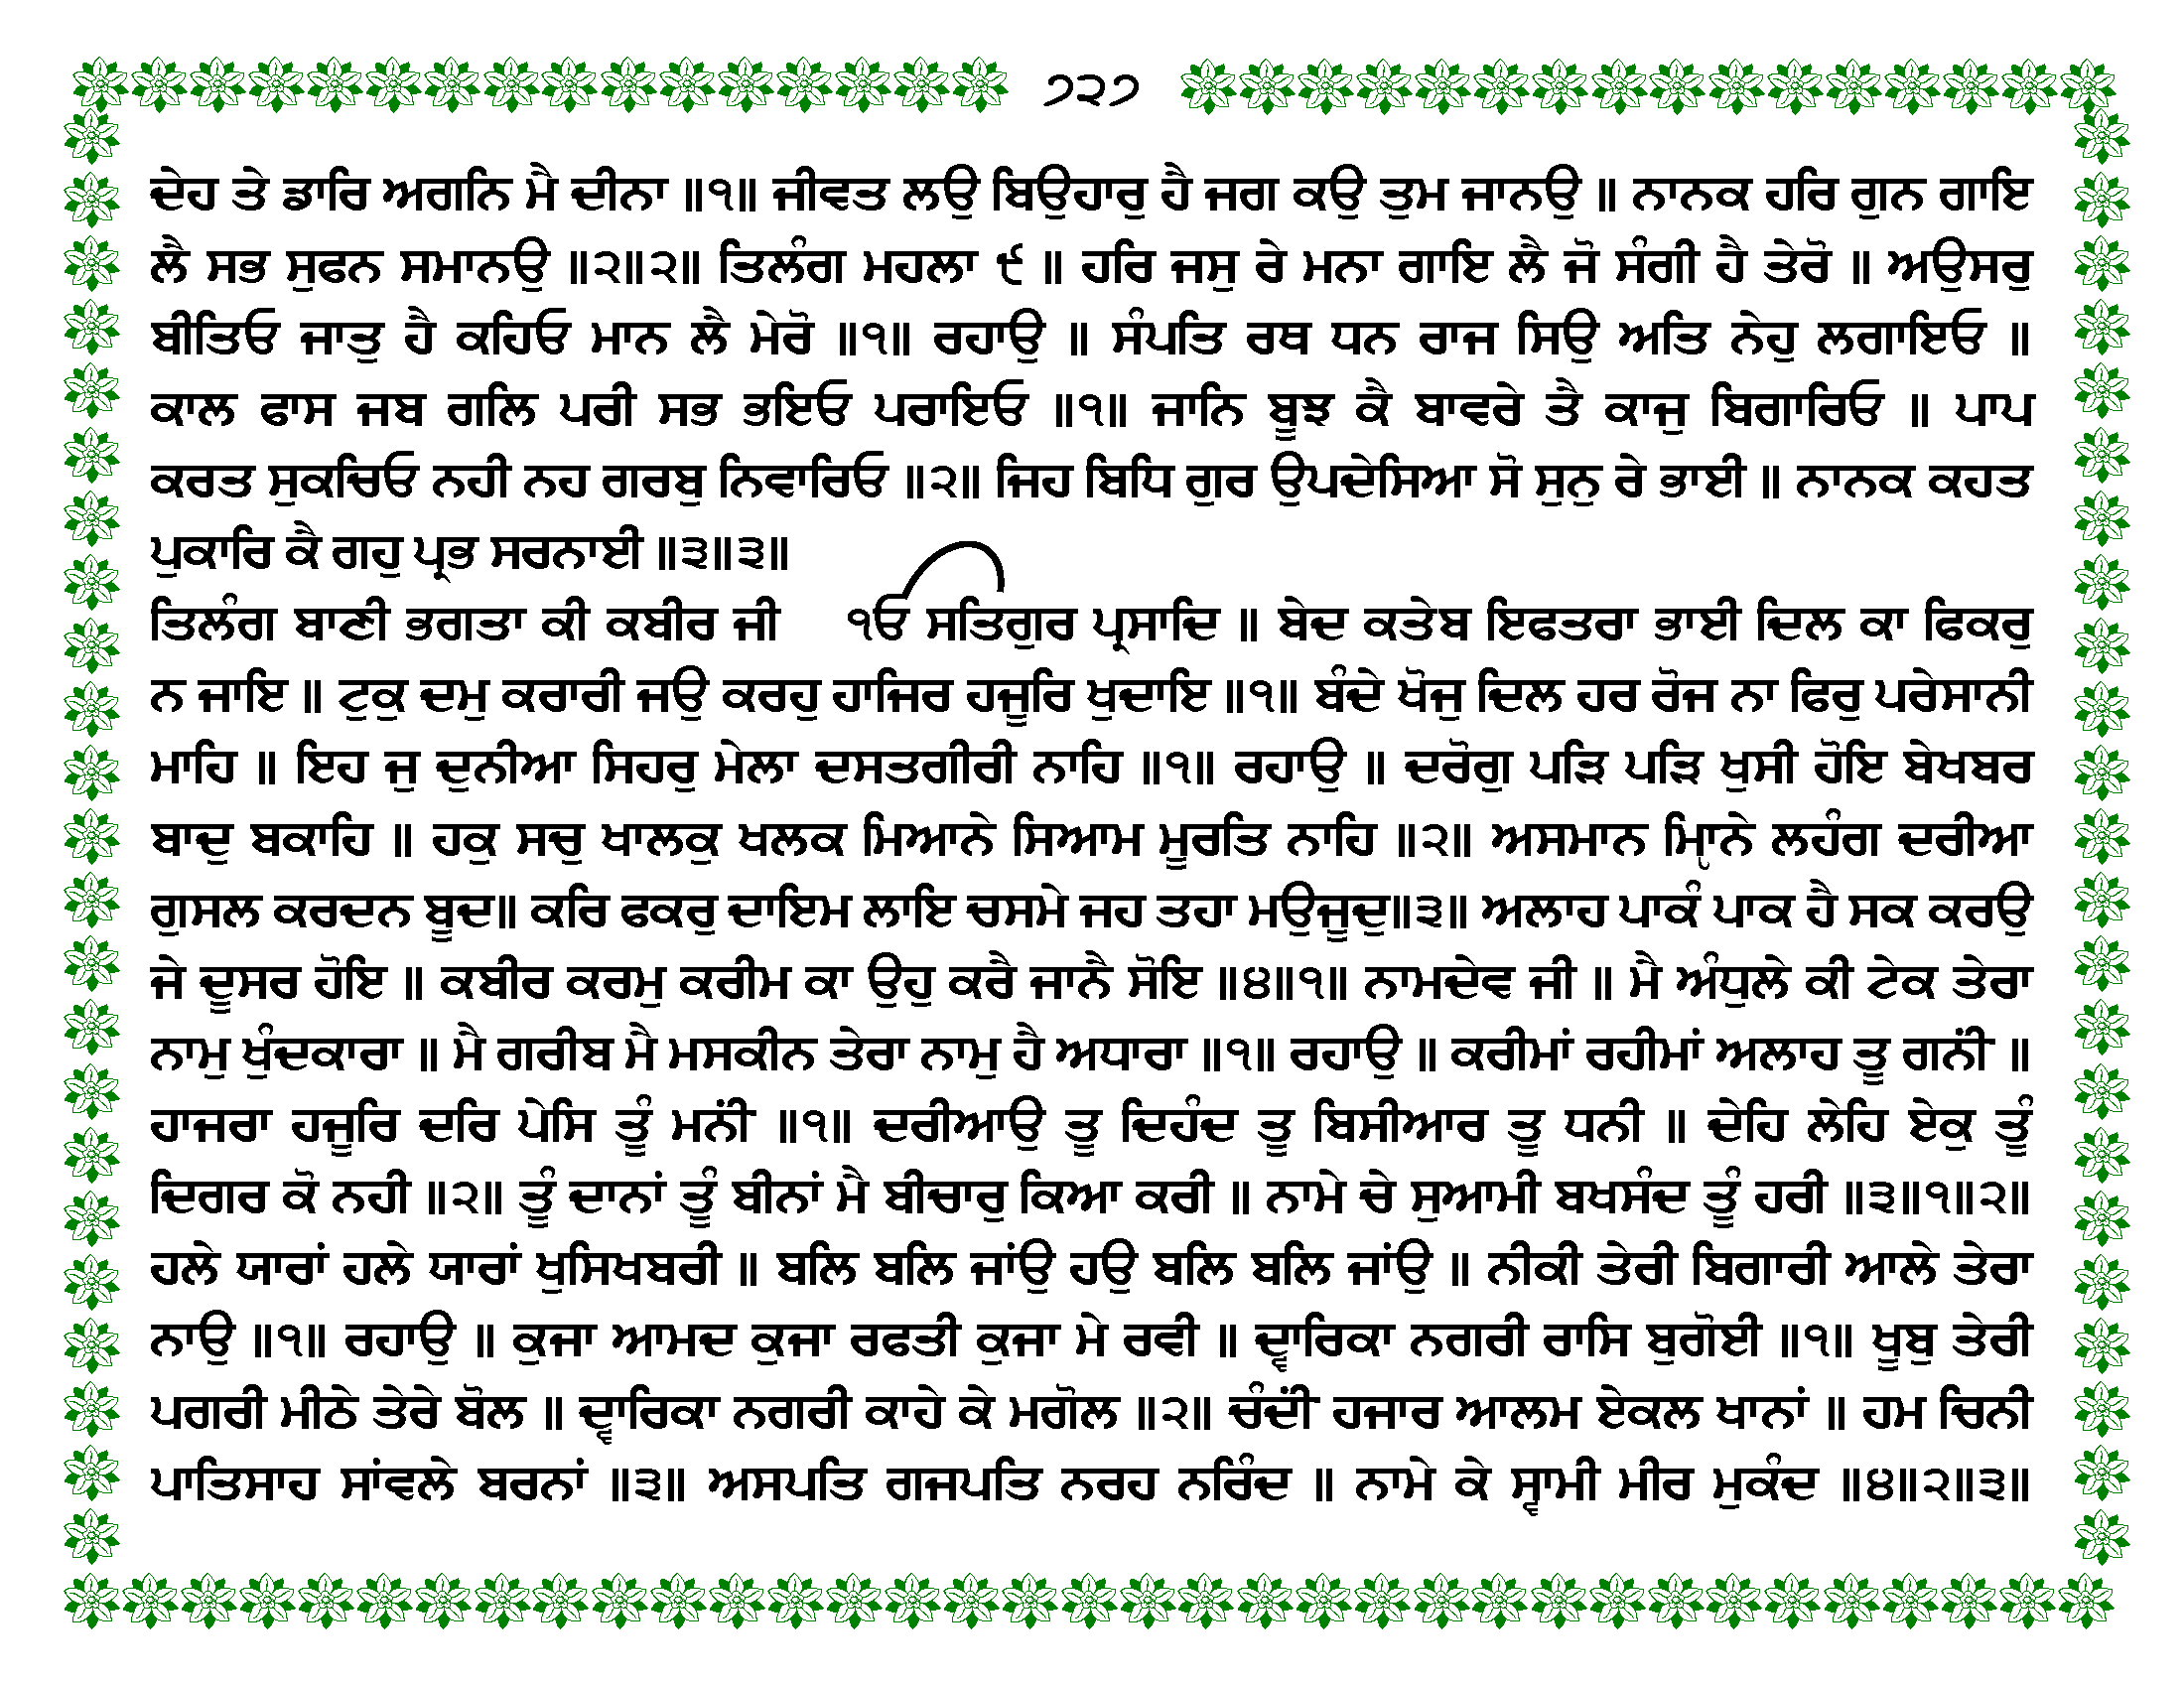 ੭੨੭
ਦੇਹ ਤੇ ਡਾਰਿ ਅਗਨਿ ਮੈ ਦੀਨਾ ॥੧॥ ਜੀਵਤ ਲਉ ਬਿਉਹਾਰੁ ਹੈ ਜਗ ਕਉ ਤੁਮ ਜਾਨਉ ॥ ਨਾਨਕ ਹਰਿ ਗੁਨ ਗਾਇ
ਲੈ ਸਭ ਸੁਫਨ ਸਮਾਨਉ ॥੨॥੨॥ ਤਿਲੰਗ ਮਹਲਾ ੯ ॥ ਹਰਿ ਜਸੁ ਰੇ ਮਨਾ ਗਾਇ ਲੈ ਜੋ ਸੰਗੀ ਹੈ ਤੇਰੋ ॥ ਅਉਸਰੁ
ਬੀਤਿਓ ਜਾਤੁ ਹੈ ਕਹਿਓ ਮਾਨ ਲੈ ਮੇਰੋ ॥੧॥ ਰਹਾਉ ॥ ਸੰਪਤਿ ਰਥ ਧਨ ਰਾਜ ਸਿਉ ਅਤਿ ਨੇਹੁ ਲਗਾਇਓ ॥
ਕਾਲ ਫਾਸ ਜਬ ਗਲਿ ਪਰੀ ਸਭ ਭਇਓ ਪਰਾਇਓ ॥੧॥ ਜਾਨਿ ਬੂਝ ਕੈ ਬਾਵਰੇ ਤੈ ਕਾਜੁ ਬਿਗਾਰਿਓ ॥ ਪਾਪ
ਕਰਤ ਸੁਕਚਿਓ ਨਹੀ ਨਹ ਗਰਬੁ ਨਿਵਾਰਿਓ ॥੨॥ ਜਿਹ ਬਿਧਿ ਗੁਰ ਉਪਦੇਸਿਆ ਸੋ ਸੁਨੁ ਰੇ ਭਾਈ ॥ ਨਾਨਕ ਕਹਤ
ਪੁਕਾਰਿ ਕੈ ਗਹੁ ਪ੍ਰਭ ਸਰਨਾਈ ॥੩॥੩॥
ਤਿਲੰਗ ਬਾਣੀ ਭਗਤਾ ਕੀ ਕਬੀਰ ਜੀ ੴ ਸਤਿਗੁਰ ਪ੍ਰਸਾਦਿ ॥ ਬੇਦ ਕਤੇਬ ਇਫਤਰਾ ਭਾਈ ਦਿਲ ਕਾ ਫਿਕਰੁ
ਨ ਜਾਇ ॥ ਟੁਕੁ ਦਮੁ ਕਰਾਰੀ ਜਉ ਕਰਹੁ ਹਾਜਿਰ ਹਜੂਰਿ ਖੁਦਾਇ ॥੧॥ ਬੰਦੇ ਖੋਜੁ ਦਿਲ ਹਰ ਰੋਜ ਨਾ ਫਿਰੁ ਪਰੇਸਾਨੀ
ਮਾਹਿ ॥ ਇਹ ਜੁ ਦੁਨੀਆ ਸਿਹਰੁ ਮੇਲਾ ਦਸਤਗੀਰੀ ਨਾਹਿ ॥੧॥ ਰਹਾਉ ॥ ਦਰੋਗੁ ਪੜਿ ਪੜਿ ਖੁਸੀ ਹੋਇ ਬੇਖਬਰ
ਬਾਦੁ ਬਕਾਹਿ ॥ ਹਕੁ ਸਚੁ ਖਾਲਕੁ ਖਲਕ ਮਿਆਨੇ ਸਿਆਮ ਮੂਰਤਿ ਨਾਹਿ ॥੨॥ ਅਸਮਾਨ ਮ੍ਯਿਾਨੇ ਲਹੰਗ ਦਰੀਆ
ਗੁਸਲ ਕਰਦਨ ਬੂਦ॥ ਕਰਿ ਫਕਰੁ ਦਾਇਮ ਲਾਇ ਚਸਮੇ ਜਹ ਤਹਾ ਮਉਜੂਦੁ॥੩॥ ਅਲਾਹ ਪਾਕੰ ਪਾਕ ਹੈ ਸਕ ਕਰਉ
ਜੇ ਦੂਸਰ ਹੋਇ ॥ ਕਬੀਰ ਕਰਮੁ ਕਰੀਮ ਕਾ ਉਹੁ ਕਰੈ ਜਾਨੈ ਸੋਇ ॥੪॥੧॥ ਨਾਮਦੇਵ ਜੀ ॥ ਮੈ ਅੰਧੁਲੇ ਕੀ ਟੇਕ ਤੇਰਾ
ਨਾਮੁ ਖੁੰਦਕਾਰਾ ॥ ਮੈ ਗਰੀਬ ਮੈ ਮਸਕੀਨ ਤੇਰਾ ਨਾਮੁ ਹੈ ਅਧਾਰਾ ॥੧॥ ਰਹਾਉ ॥ ਕਰੀਮਾਂ ਰਹੀਮਾਂ ਅਲਾਹ ਤੂ ਗਨੀਂ ॥
ਹਾਜਰਾ ਹਜੂਰਿ ਦਰਿ ਪੇਸਿ ਤੂੰ ਮਨੀਂ ॥੧॥ ਦਰੀਆਉ ਤੂ ਦਿਹੰਦ ਤੂ ਬਿਸੀਆਰ ਤੂ ਧਨੀ ॥ ਦੇਹਿ ਲੇਹਿ ਏਕੁ ਤੂੰ
ਦਿਗਰ ਕੋ ਨਹੀ ॥੨॥ ਤੂੰ ਦਾਨਾਂ ਤੂੰ ਬੀਨਾਂ ਮੈ ਬੀਚਾਰੁ ਕਿਆ ਕਰੀ ॥ ਨਾਮੇ ਚੇ ਸੁਆਮੀ ਬਖਸੰਦ ਤੂੰ ਹਰੀ ॥੩॥੧॥੨॥
ਹਲੇ ਯਾਰਾਂ ਹਲੇ ਯਾਰਾਂ ਖੁਸਿਖਬਰੀ ॥ ਬਲਿ ਬਲਿ ਜਾਂਉ ਹਉ ਬਲਿ ਬਲਿ ਜਾਂਉ ॥ ਨੀਕੀ ਤੇਰੀ ਬਿਗਾਰੀ ਆਲੇ ਤੇਰਾ
ਨਾਉ ॥੧॥ ਰਹਾਉ ॥ ਕੁਜਾ ਆਮਦ ਕੁਜਾ ਰਫਤੀ ਕੁਜਾ ਮੇ ਰਵੀ ॥ ਦ੍ਵਾਰਿਕਾ ਨਗਰੀ ਰਾਸਿ ਬੁਗੋਈ ॥੧॥ ਖੂਬੁ ਤੇਰੀ
ਪਗਰੀ ਮੀਠੇ ਤੇਰੇ ਬੋਲ ॥ ਦ੍ਵਾਰਿਕਾ ਨਗਰੀ ਕਾਹੇ ਕੇ ਮਗੋਲ ॥੨॥ ਚੰਦੀਂ ਹਜਾਰ ਆਲਮ ਏਕਲ ਖਾਨਾਂ ॥ ਹਮ ਚਿਨੀ
ਪਾਤਿਸਾਹ ਸਾਂਵਲੇ ਬਰਨਾਂ ॥੩॥ ਅਸਪਤਿ ਗਜਪਤਿ ਨਰਹ ਨਰਿੰਦ ॥ ਨਾਮੇ ਕੇ ਸ੍ਵਾਮੀ ਮੀਰ ਮੁਕੰਦ ॥੪॥੨॥੩॥